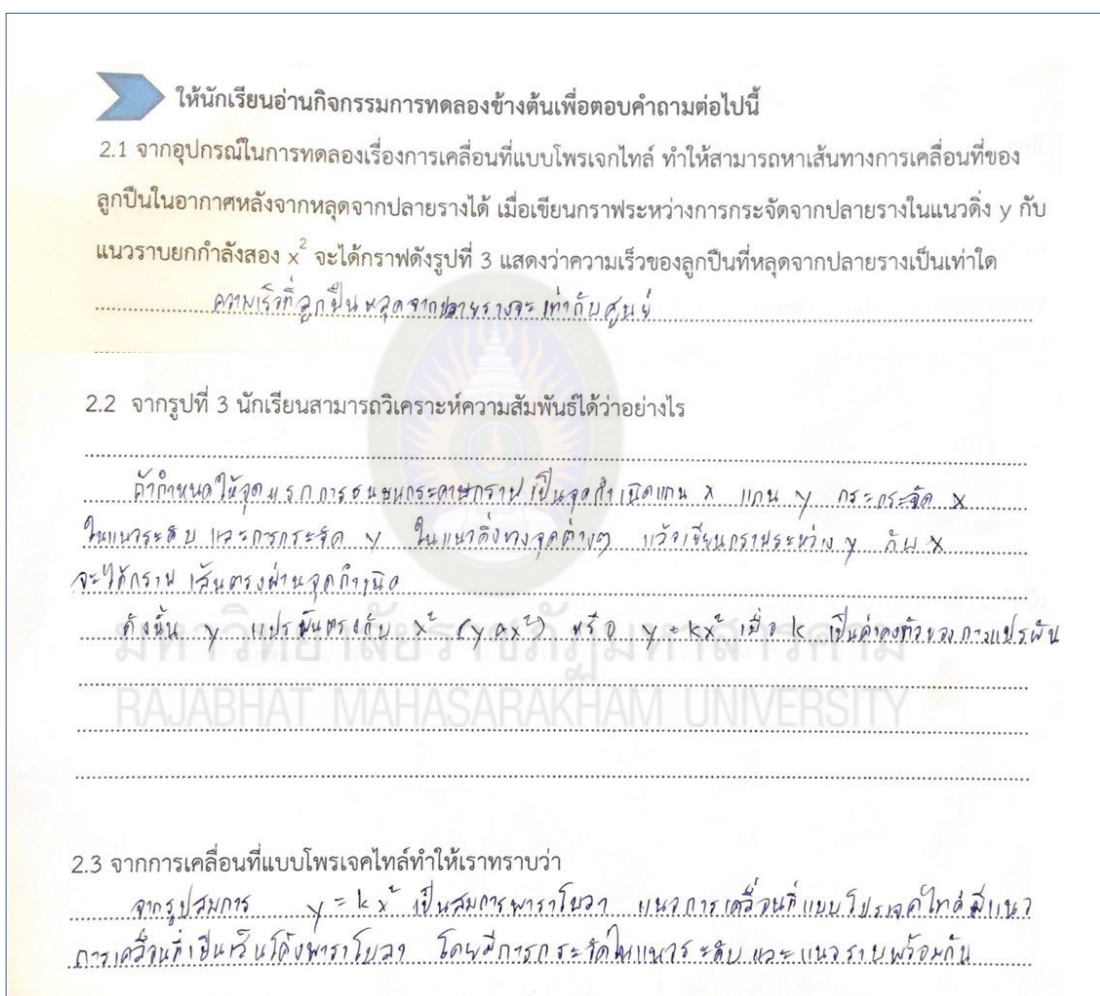 ให้นักเรียนอ่านกิจกรรมการทดลองข้างต้นเพื่อตอบคำถามต่อไปนี้
2.1 จากอุปกรณ์ในการทดลองเรื่องการเคลื่อนที่แบบโพรเจกไทล์ ทำให้สามารถหาเส้นทางการเคลื่อนที่ของ
ลูกปืนในอากาศหลังจากหลุดจากปลายรางได้ เมื่อเขียนกราฟระหว่างการกระจัดจากปลายรางในแนวดิ่ง y กับ
แนวราบยกกำลังสอง x² จะได้กราฟดังรูปที่ 3 แสดงว่าความเร็วของลูกปืนที่หลุดจากปลายรางเป็นเท่าใด
ความเร็วที่ลูกปืนหลุดจากปลายรางจะเท่ากับศูนย์
2.2 จากรูปที่ 3 นักเรียนสามารถวิเคราะห์ความสัมพันธ์ได้ว่าอย่างไร
ถ้ากำหนดให้จุดแรกการชนบนกระดาษกราฟเป็นจุดกำเนิดแกน x แกน y กระกระจัด x
ในแนวระดับ และการกระจัด y ในแนวดิ่งของจุดต่างๆ แล้วเขียนกราฟระหว่าง y กับ x
จะได้กราฟ เส้นตรงผ่านจุดกำเนิด
ดังนั้น y แปรผันตรงกับ x² (y∝x²) หรือ y = kx² เมื่อ k เป็นค่าคงตัวของการแปรผัน
มหาวิทยาลัยราชภัฏมหาสารคาม
RAJABHAT MAHASARAKHAM UNIVERSITY
2.3 จากการเคลื่อนที่แบบโพรเจคไทล์ทำให้เราทราบว่า
จากรูปสมการ y = kx² เป็นสมการพาราโบลา แนวการเคลื่อนที่แบบโปรเจคไทล์มีแนว
การเคลื่อนที่เป็นเส้นโค้งพาราโบลา โดยมีการกระจัดในแนวระดับ และแนวราบพร้อมกัน